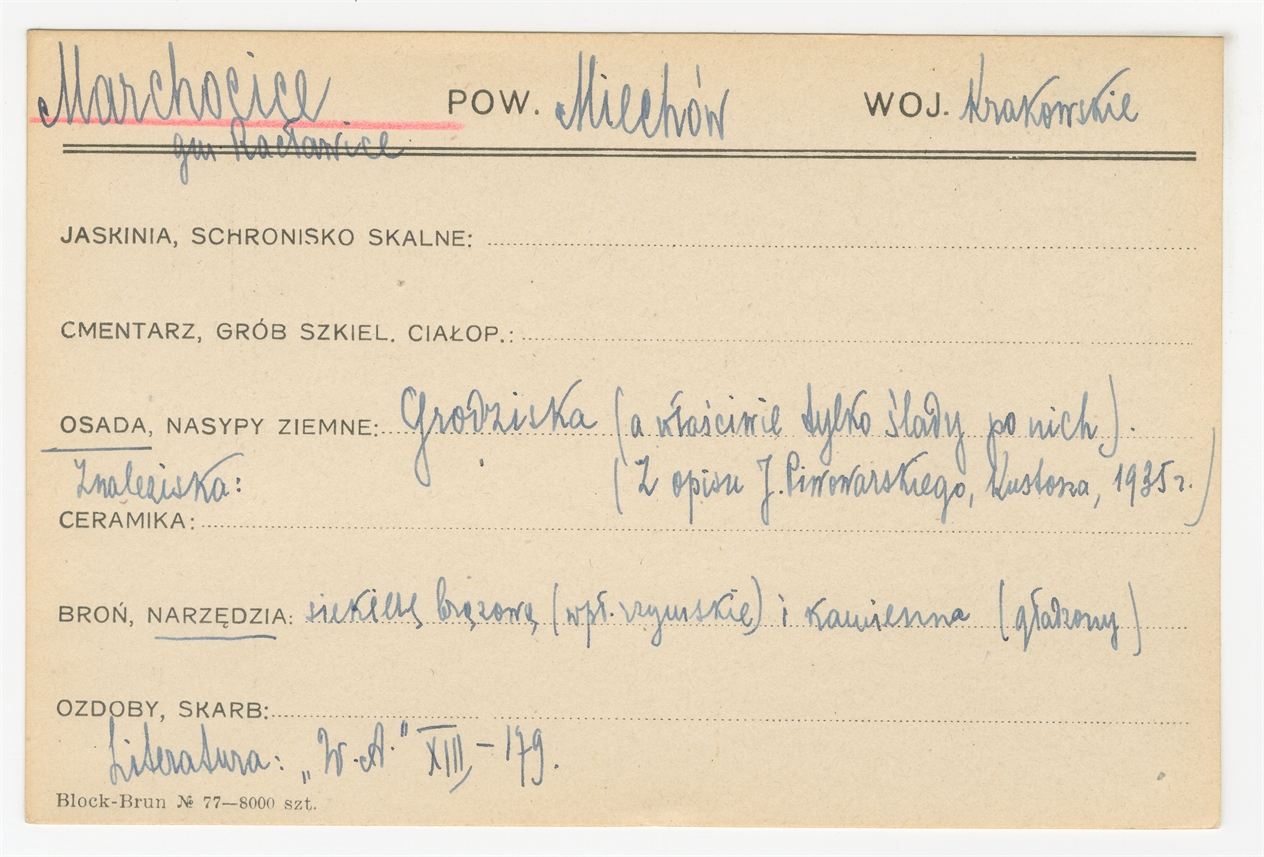 Marchocice POW. Miechów WOJ. Krakowskie
gm. Racławice
JASKINIA, SCHRONISKO SKALNE:
CMENTARZ, GRÓB SZKIEL. CIAŁOP.:
OSADA, NASYPY ZIEMNE: Grodziska (a właściwie tylko ślady po nich).
Znaleziska: (Z opisu J. Piwowarskiego, Kustosza, 1935 r.)
CERAMIKA:
BROŃ, NARZĘDZIA: siekierę brązową (wpł. rzymskie) i kamienna (gładzony)
OZDOBY, SKARB:
Literatura: „W.A." XIII, – 179.
Block-Brun № 77—8000 szt.